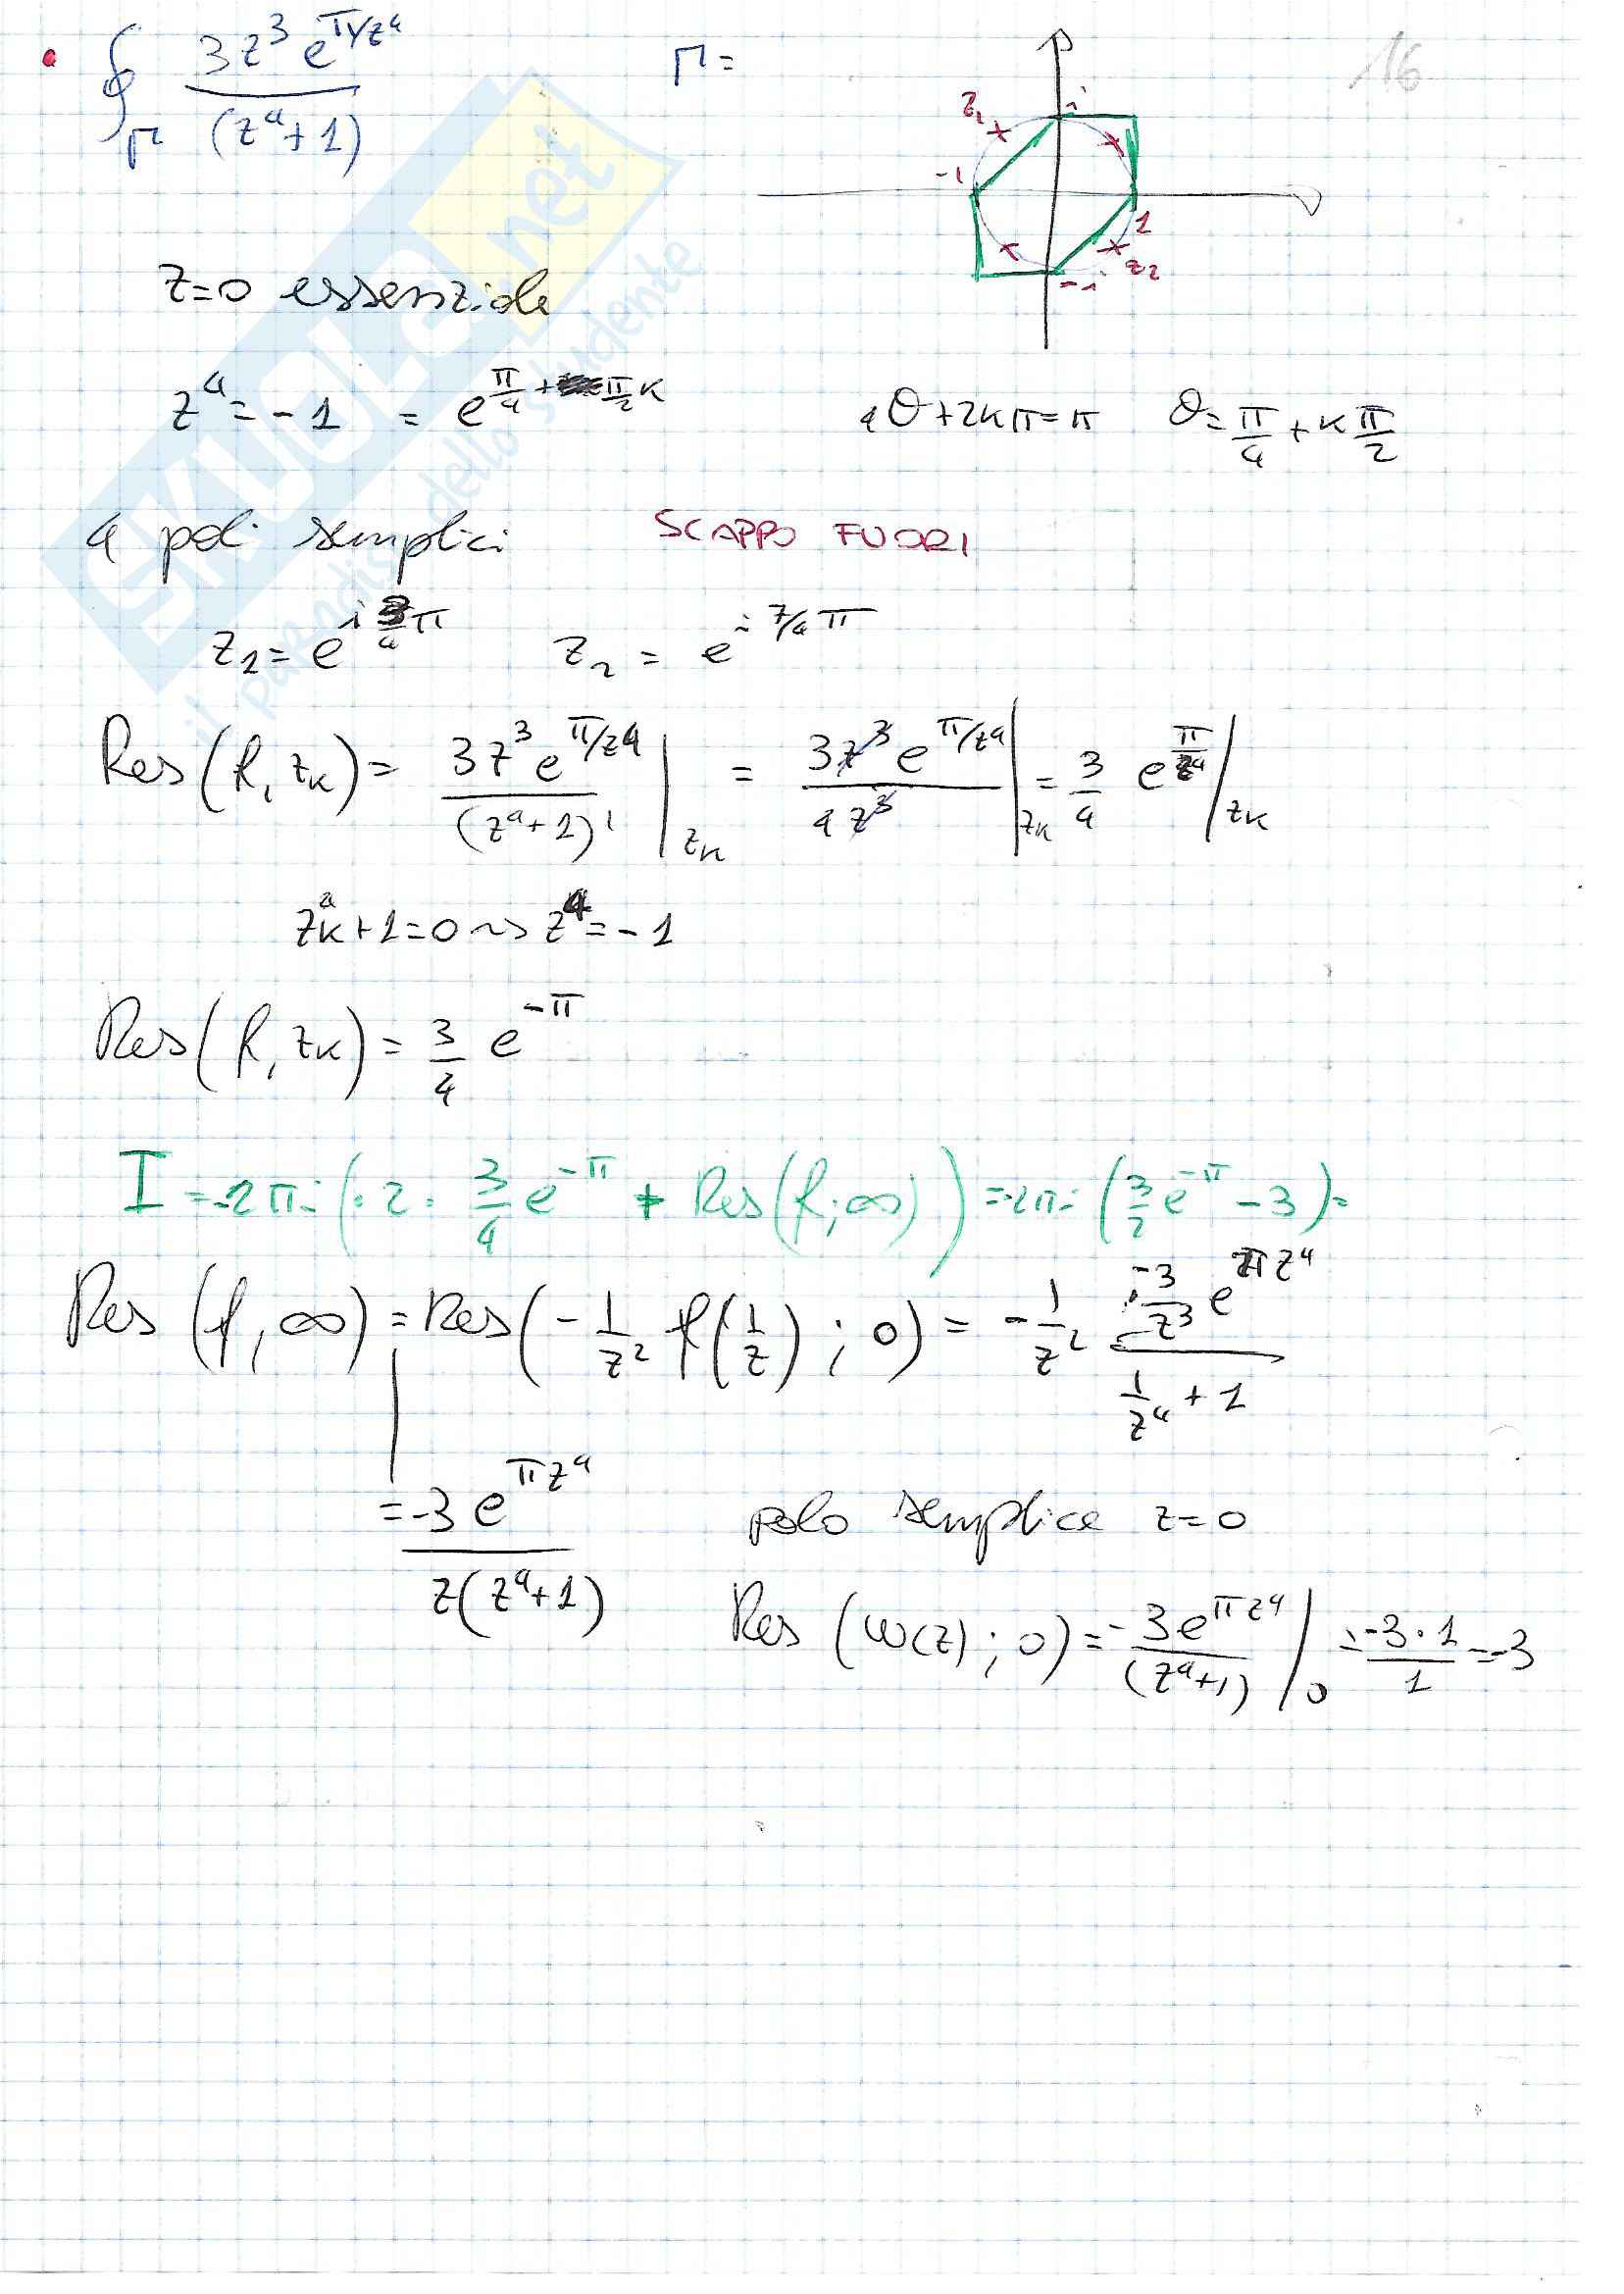 • ∮_Γ 3z³ e^{π/z⁴} / (z⁴+1)   Γ =   16
i
z₁
-1
1
z₂
-i
z=0 essenziale
z⁴ = -1 = e^{π/4 + π/2 k}   4θ+2kπ=π   θ= π/4 + k π/2
4 poli semplici   SCAPPO FUORI
z₁ = e^{i 3/4 π}   z₂ = e^{i 7/4 π}
Res(f, z_k) = 3z³ e^{π/z⁴} / (z⁴+1)' |_{z_k} = 3z³ e^{π/z⁴} / 4z³ |_{z_k} = 3/4 e^{π/z⁴} |_{z_k}
z_k⁴+1=0 ⇝ z⁴=-1
Res(f, z_k) = 3/4 e^{-π}
I = -2πi (2 · 3/4 e^{-π} + Res(f; ∞)) = -2πi (3/2 e^{-π} - 3) =
Res(f, ∞) = Res(-1/z² f(1/z); 0) = -1/z² · 3/z³ e^{πz⁴} / (1/z⁴ + 1)
= -3 e^{πz⁴} / z(z⁴+1)   polo semplice z=0
Res(w(z); 0) = -3e^{πz⁴} / (z⁴+1) |_0 = -3·1 / 1 = -3
SKUOLA.net
il paradiso dello studente